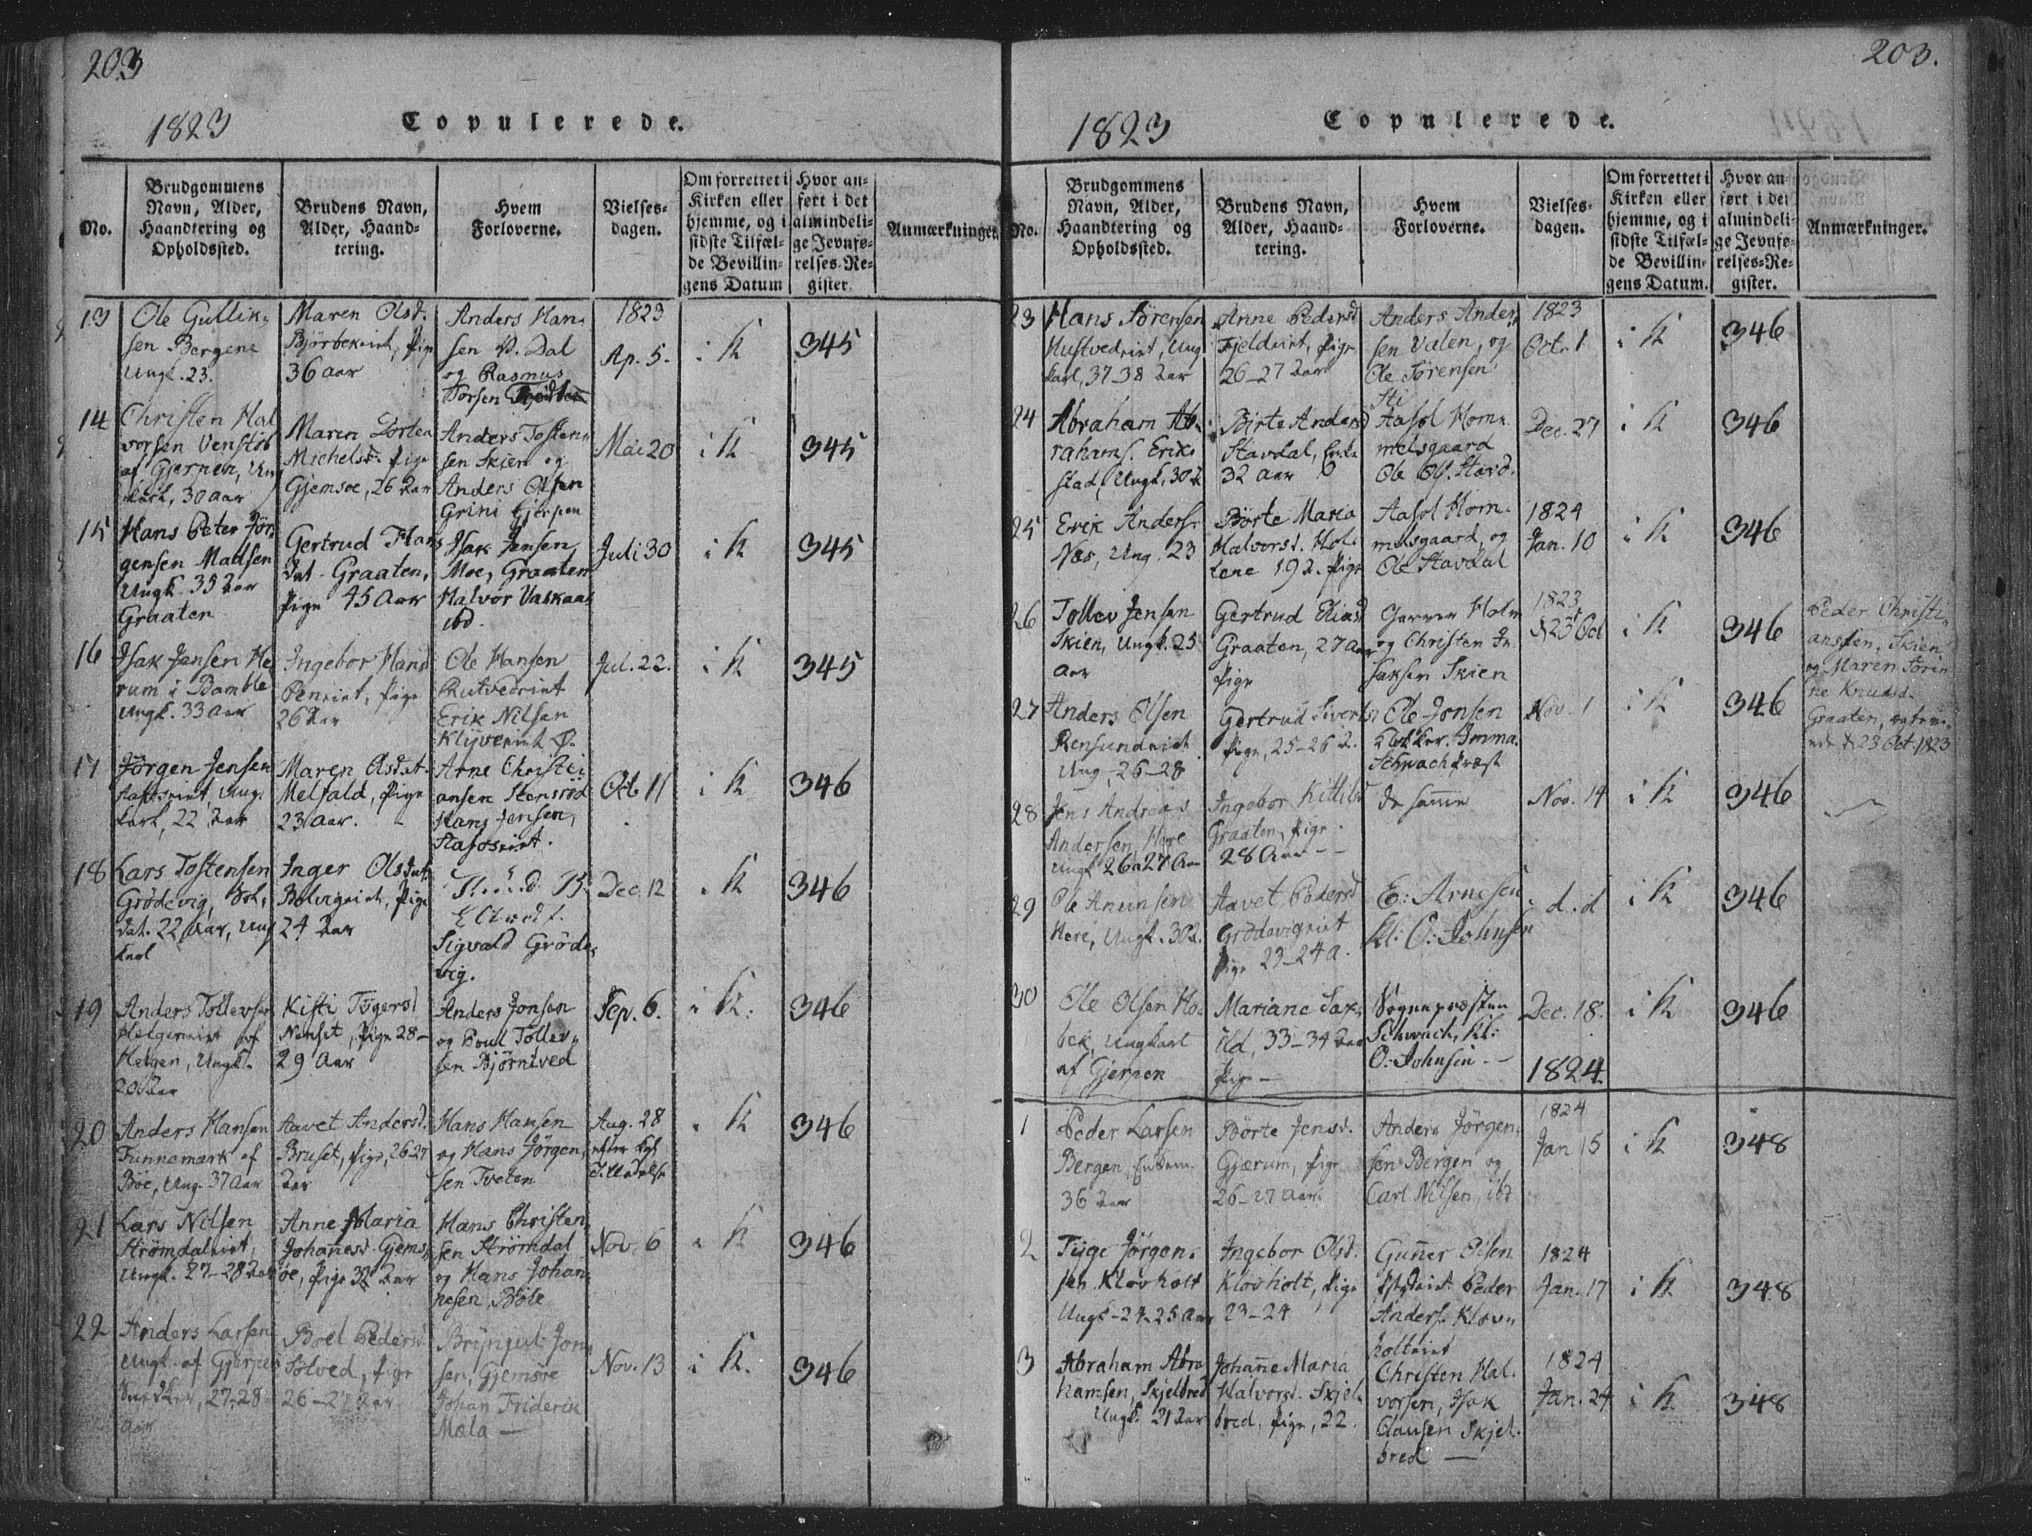 203
1823
Copulerede.
No.
Brudgommens
Navn, Alder,
Haandtering og
Opholdssted.
Brudens Navn,
Alder, Haand-
tering.
Hvem
Forloverne.
Vielses-
dagen.
Om forrettet i
Kirken eller
hjemme, og i
sidste Tilfæl-
de Bevillin-
gens Datum
Hvor an-
ført i det
almindeli-
ge Jevnfø-
relses-Re-
gister.
Anmærkninger.
13
Ole Gullik-
sen Bergene
Ungk. 23.
Maren Olsd.
Björbekeiet, Pige
36 aar
Anders Han-
sen V. Dal
og Rasmus
Torsen
1823
Ap. 5.
i K
345
14
Christen Hal
vorsen Venstöb
af Gjerpen, Ung
karl, 30 aar
Maren Dortea
Michelsd. Pige
Gjemsoe, 26 aar
Anders Tosten-
sen Skien og
Anders Olsen
Grini Gjerpen
Mai 20
i K
345
15
Hans Peter Jör
gensen Madsen
Ungk. 35 aar
Graaten
Gertrud Hans
dat. Graaten,
Pige 45 Aar
Isak Jensen
Moe, Graaten
Halvor Vaskaas
ibd.
Juli 30
i K
345
16
Isak Jensen He
rum i Bamble
Ungk. 33 Aar
Ingebor Hansd
Peneiet, Pige
26 aar
Ole Hansen
Rutvedeiet
Erik Nilsen
Klyveeiet
Jul. 22.
i K
345
17
Jörgen Jensen
Ung-
karl, 22 aar
Maren Olsdat.
Melfald, Pige
23 Aar.
Arne Christi-
ansen Stensrød
Hans Jensen,
Octb 11
i K
346
18
Lars Tostensen
Grödevig, Sol-
dat. 22 Aar, Ung
karl
Inger Olsdat.
Bolvigeiet, Pige
24 aar
Sigvald Gröde-
vig.
Dec. 12
i K
346
19
Anders Tollevsen
Helgeneiet af
Helgen, Ungk.
20 aar
Kisti Tögersd
Nenset, Pige 28-
29 Aar
Anders Jonsen
og Poul Tollev-
sen Björntved
Sep. 6.
i K.
346
20
Anders Hansen
Tunnemark af
Böe, Ung. 37 Aar
Aavet Andersd.
Bruset, Pige, 26-27
aar
Hans Hansen
og Hans Jörgen-
sen Tveten
Aug. 28
efter Kgl
Tilladelse
i K
346
21
Lars Nilsen
Strömdaleiet,
Ungk. 27-28 aar
Anne Maria
Johan̄esd. Gjems-
öe, Pige 32 aar
Hans Christen-
sen Strömdal
og Hans Johan-
nesen, Böle
Nov. 6
i K
346
22
Anders Larsen
Ungk. af Gjerpen
Snedker, 27-28
aar
Boel Pedersd.
Solved, Pige
26-27 aar
Bryngul Jon-
sen, Gjemsöe
Johan Friderik
Mæla
Nov. 13
i K.
346
203.
1823
Copulerede.
No.
Brudgommens
Navn, Alder,
Haandtering og
Opholdssted.
Brudens Navn,
Alder, Haand-
tering.
Hvem
Forloverne.
Vielses-
dagen.
Om forrettet i
Kirken eller
hjemme, og i
sidste Tilfæl-
de Bevillin-
gens Datum.
Hvor an-
ført i det
almindeli-
ge Jevnfø-
relses-Re-
gister.
Anmærkninger.
23
Hans Sörensen
Hustvedeiet, Ung
karl, 37-38 aar
Anne Pedersd
Fjeldeiet, Pige
26-27 aar
Anders Ander-
sen Valen, og
Ole Sörensen
Sti
1823
Octr. 1
i K
346
24
Abraham Ab-
rahams. Erik-
stad, Ungk. 30 a
Birte Andersd
Stavdal, Enke
32 aar
Aasol Hom-
melsgaard
Ole
Dec. 27
i K
346
25
Erik Anders.
Næs, Ung. 23
Börte Maria
Halvorsd. Hol-
lene 19 a. Pige
Aasol Hom-
melsgaard, og
Ole Stavdal
1824
Jan. 10
i K
346
26
Tollev Jensen
Skien, Ungk. 25
aar
Gertrud Eliasd
Graaten, 27 aar
Pige
Holm
og Christen
Isaksen Skien
1823
23 Oct
i K
346
Peder Christi-
ansen, Skien,
og Maren Sörin-
ne Knudsd.
Graaten,
23 Oct 1823
27
Anders Olsen
Rensundeiet
Ung. 26-28
Gertrud Siverts
Pige, 25-26 a.
Ole Jonsen
Klokker.
Schwach Præst
Nov. 1
i K
346
28
Jens Andreas
Andersen, Here
Ungk. 26 a 27 Aar
Ingebor Kittilsd
Graaten, Pige
28 Aar
de sam̄e
Nov. 14
i K
346
29
Ole Anunsen
Here, Ungk. 30 a.
Aavet Pedersd
Grödevigeiet
Pige 23-24 a.
E: Arnesen
kl: O: Johnsen
d. d
i K
346
30
Ole Olsen Ho-
bek, Ungkarl
af Gjerpen
Mariane Sax-
ild, 33-34 aar
Pige
Sognepræsten
Schwach, kl:
O: Johnsen
Dec. 18.
i K
346
1824
1
Peder Larsen
Bergen, Enkem.
36 aar
Börte Jensd.
Gjærum, Pige
26-27 aar.
Anders Jörgen-
sen Bergen og
Carl Nilsen, ibd
1824
Jan 15
i K
348
2
Tyge Jörgen-
sen Klovholt
Ungk. 24-25 aar
Ingebor Olsd.
Klovholt, Pige
23-24
Gun̄er Olsen
Peder
Anders. Klov-
holteiet
1824
Jan. 17
i K
348
3
Abraham Abra
hamsen, Skjelbred
Ungk. 21 aar
Johan̄e Maria
Halvorsd. Skjel-
bred, Pige, 22.
Christen Hal-
vorsen, Isak
Clausen Skjel-
bred
1824
Jan. 24
i K
348